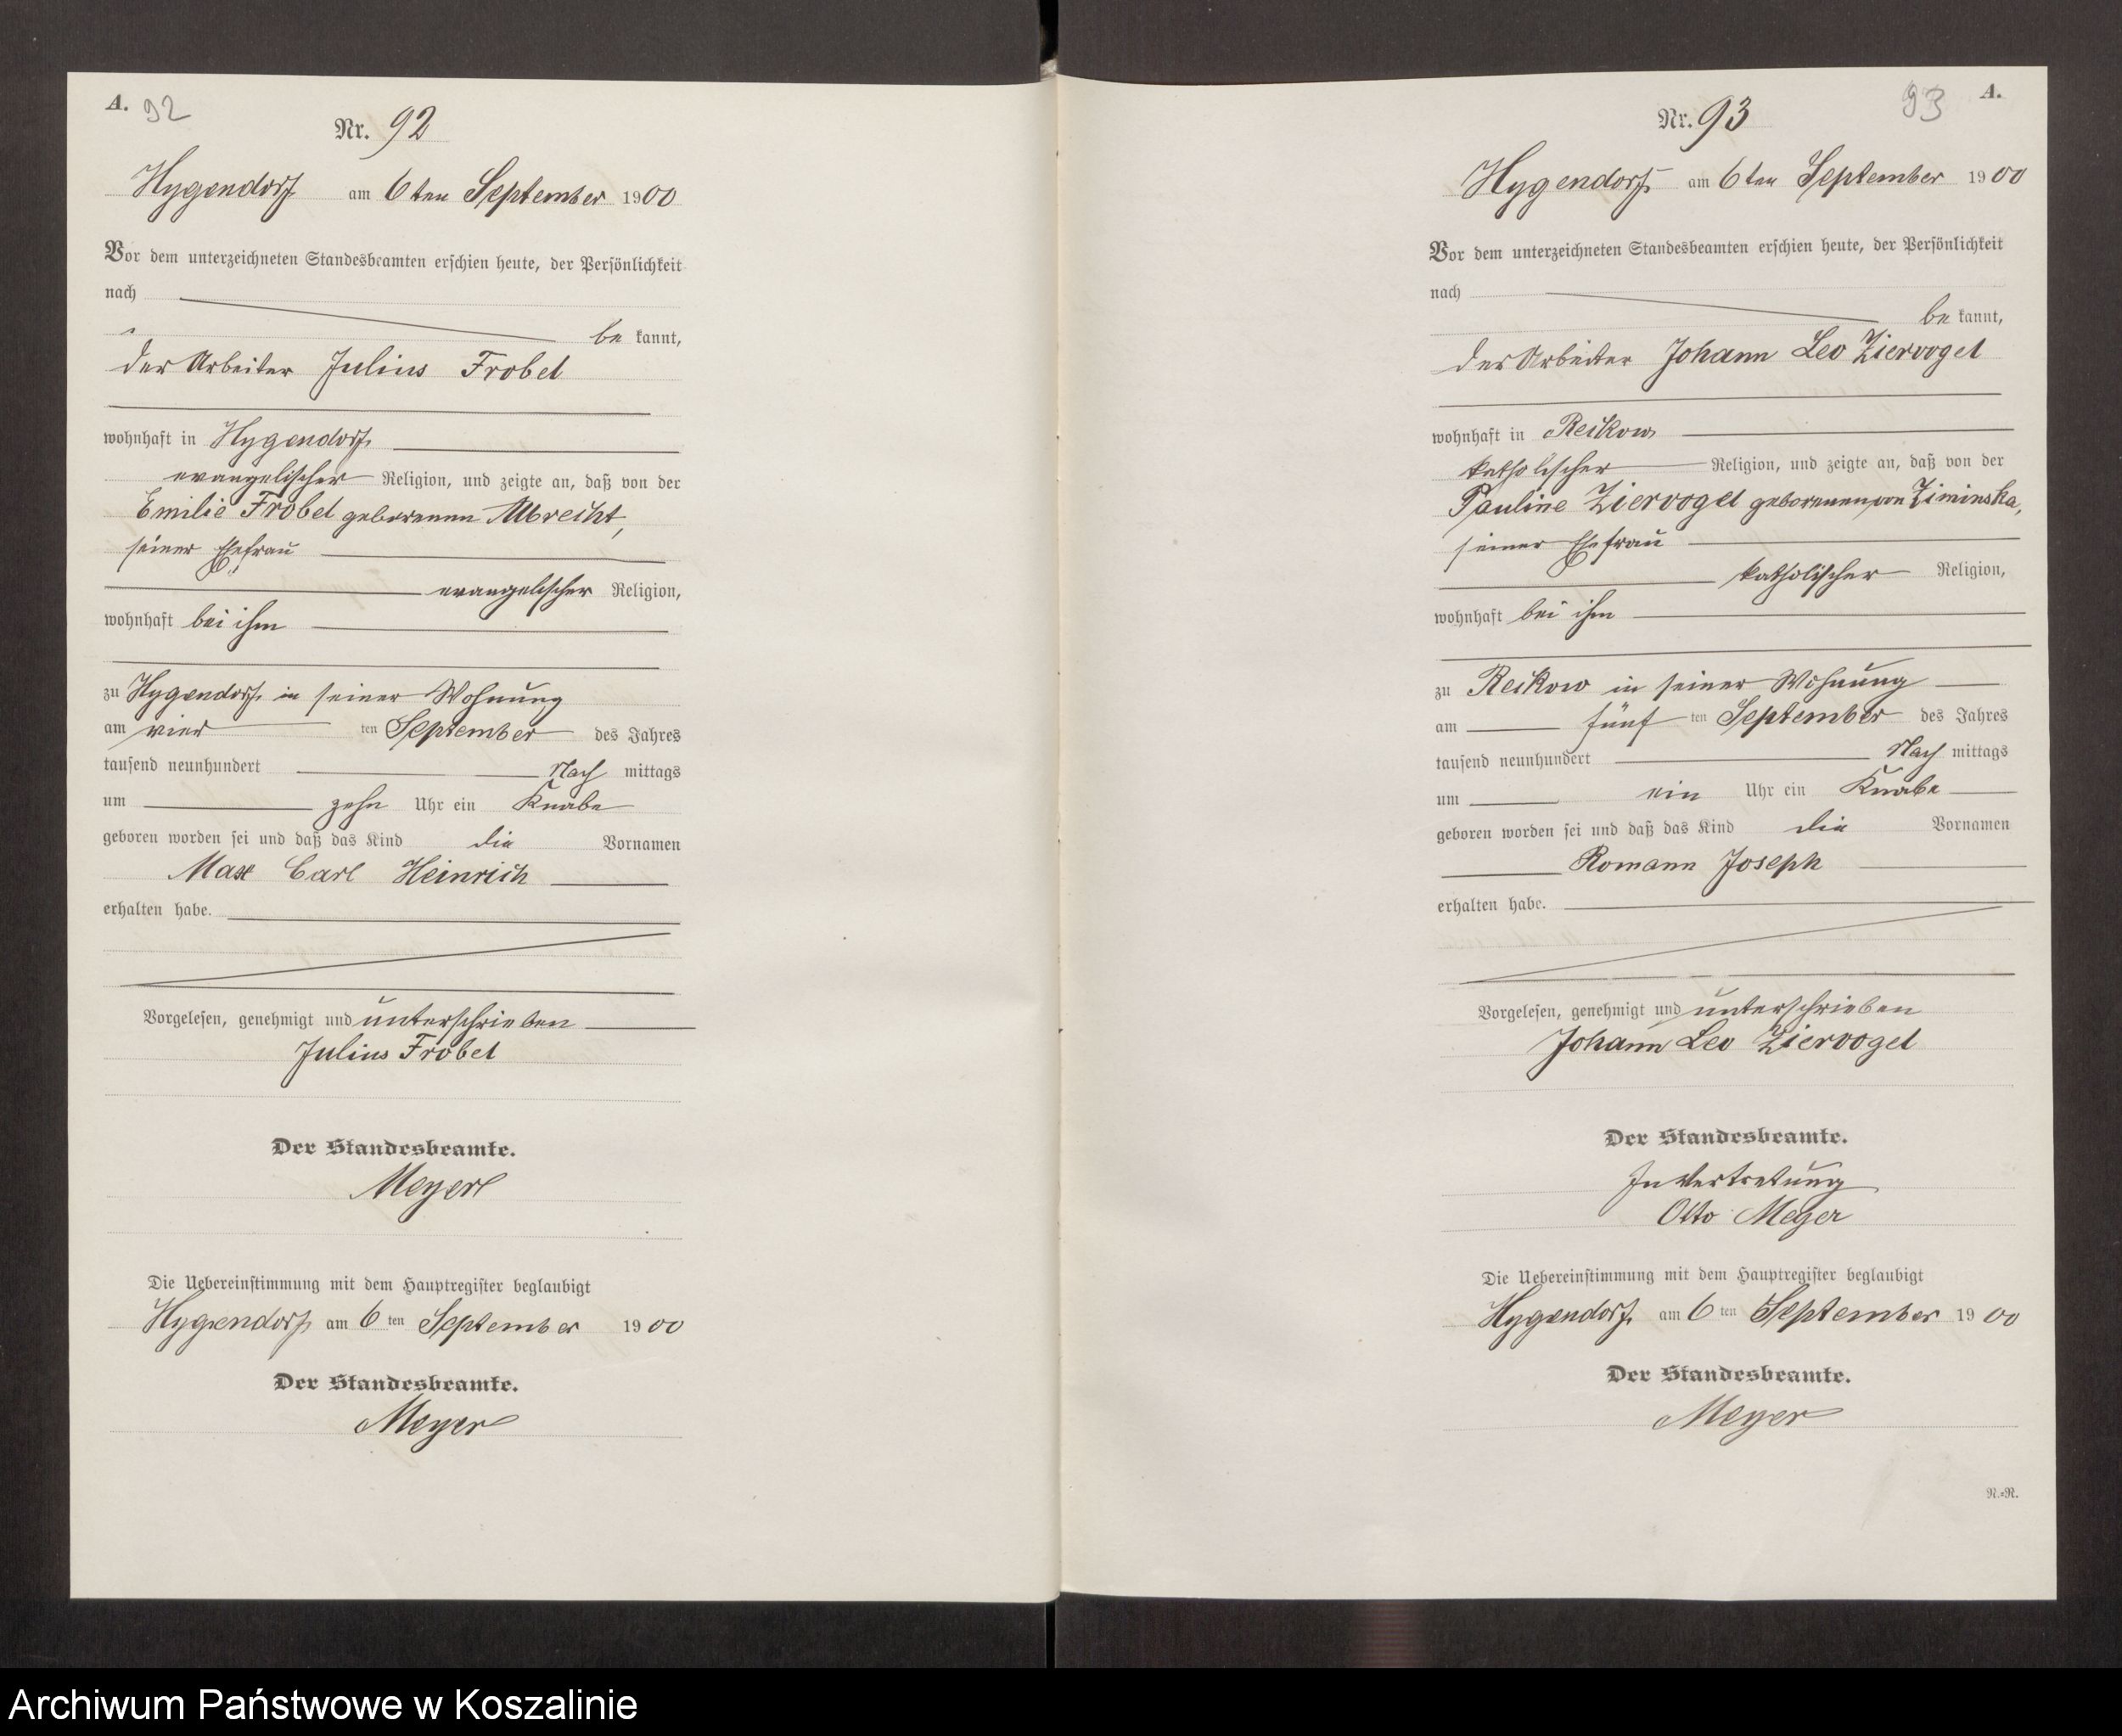 A. 92
Nr. 92
Hygendorf am 6ten September 1900
Vor dem unterzeichneten Standesbeamten erschien heute, der Persönlichkeit
nach
be kannt,
der Arbeiter Julius Frobel
wohnhaft in Hygendorf
evangelischer Religion, und zeigte an, daß von der
Emilie Frobel geborenen Albrecht,
seiner Ehefrau
evangelischer Religion,
wohnhaft bei ihm
zu Hygendorf in seiner Wohnung
am vier ten September des Jahres
tausend neunhundert Nach mittags
um zehn Uhr ein Knabe
geboren worden sei und daß das Kind die Vornamen
Max Carl Heinrich
erhalten habe.
Vorgelesen, genehmigt und unterschrieben
Julius Frobel
Der Standesbeamte.
Meyer
Die Uebereinstimmung mit dem Hauptregister beglaubigt
Hygendorf am 6 ten September 1900
Der Standesbeamte.
Meyer
93 A.
Nr. 93
Hygendorf am 6ten September 1900
Vor dem unterzeichneten Standesbeamten erschien heute, der Persönlichkeit
nach
be kannt,
der Arbeiter Johann Leo Ziervogel
wohnhaft in Reikow
katholischer Religion, und zeigte an, daß von der
Pauline Ziervogel geborenen von Ziminska,
seiner Ehefrau
katholischer Religion,
wohnhaft bei ihm
zu Reikow in seiner Wohnung
am fünf ten September des Jahres
tausend neunhundert Nach mittags
um ein Uhr ein Knabe
geboren worden sei und daß das Kind die Vornamen
Romann Joseph
erhalten habe.
Vorgelesen, genehmigt und unterschrieben
Johann Leo Ziervogel
Der Standesbeamte.
In Vertretung
Otto Meyer
Die Uebereinstimmung mit dem Hauptregister beglaubigt
Hygendorf am 6 ten September 1900
Der Standesbeamte.
Meyer
N.=R.
Archiwum Państwowe w Koszalinie